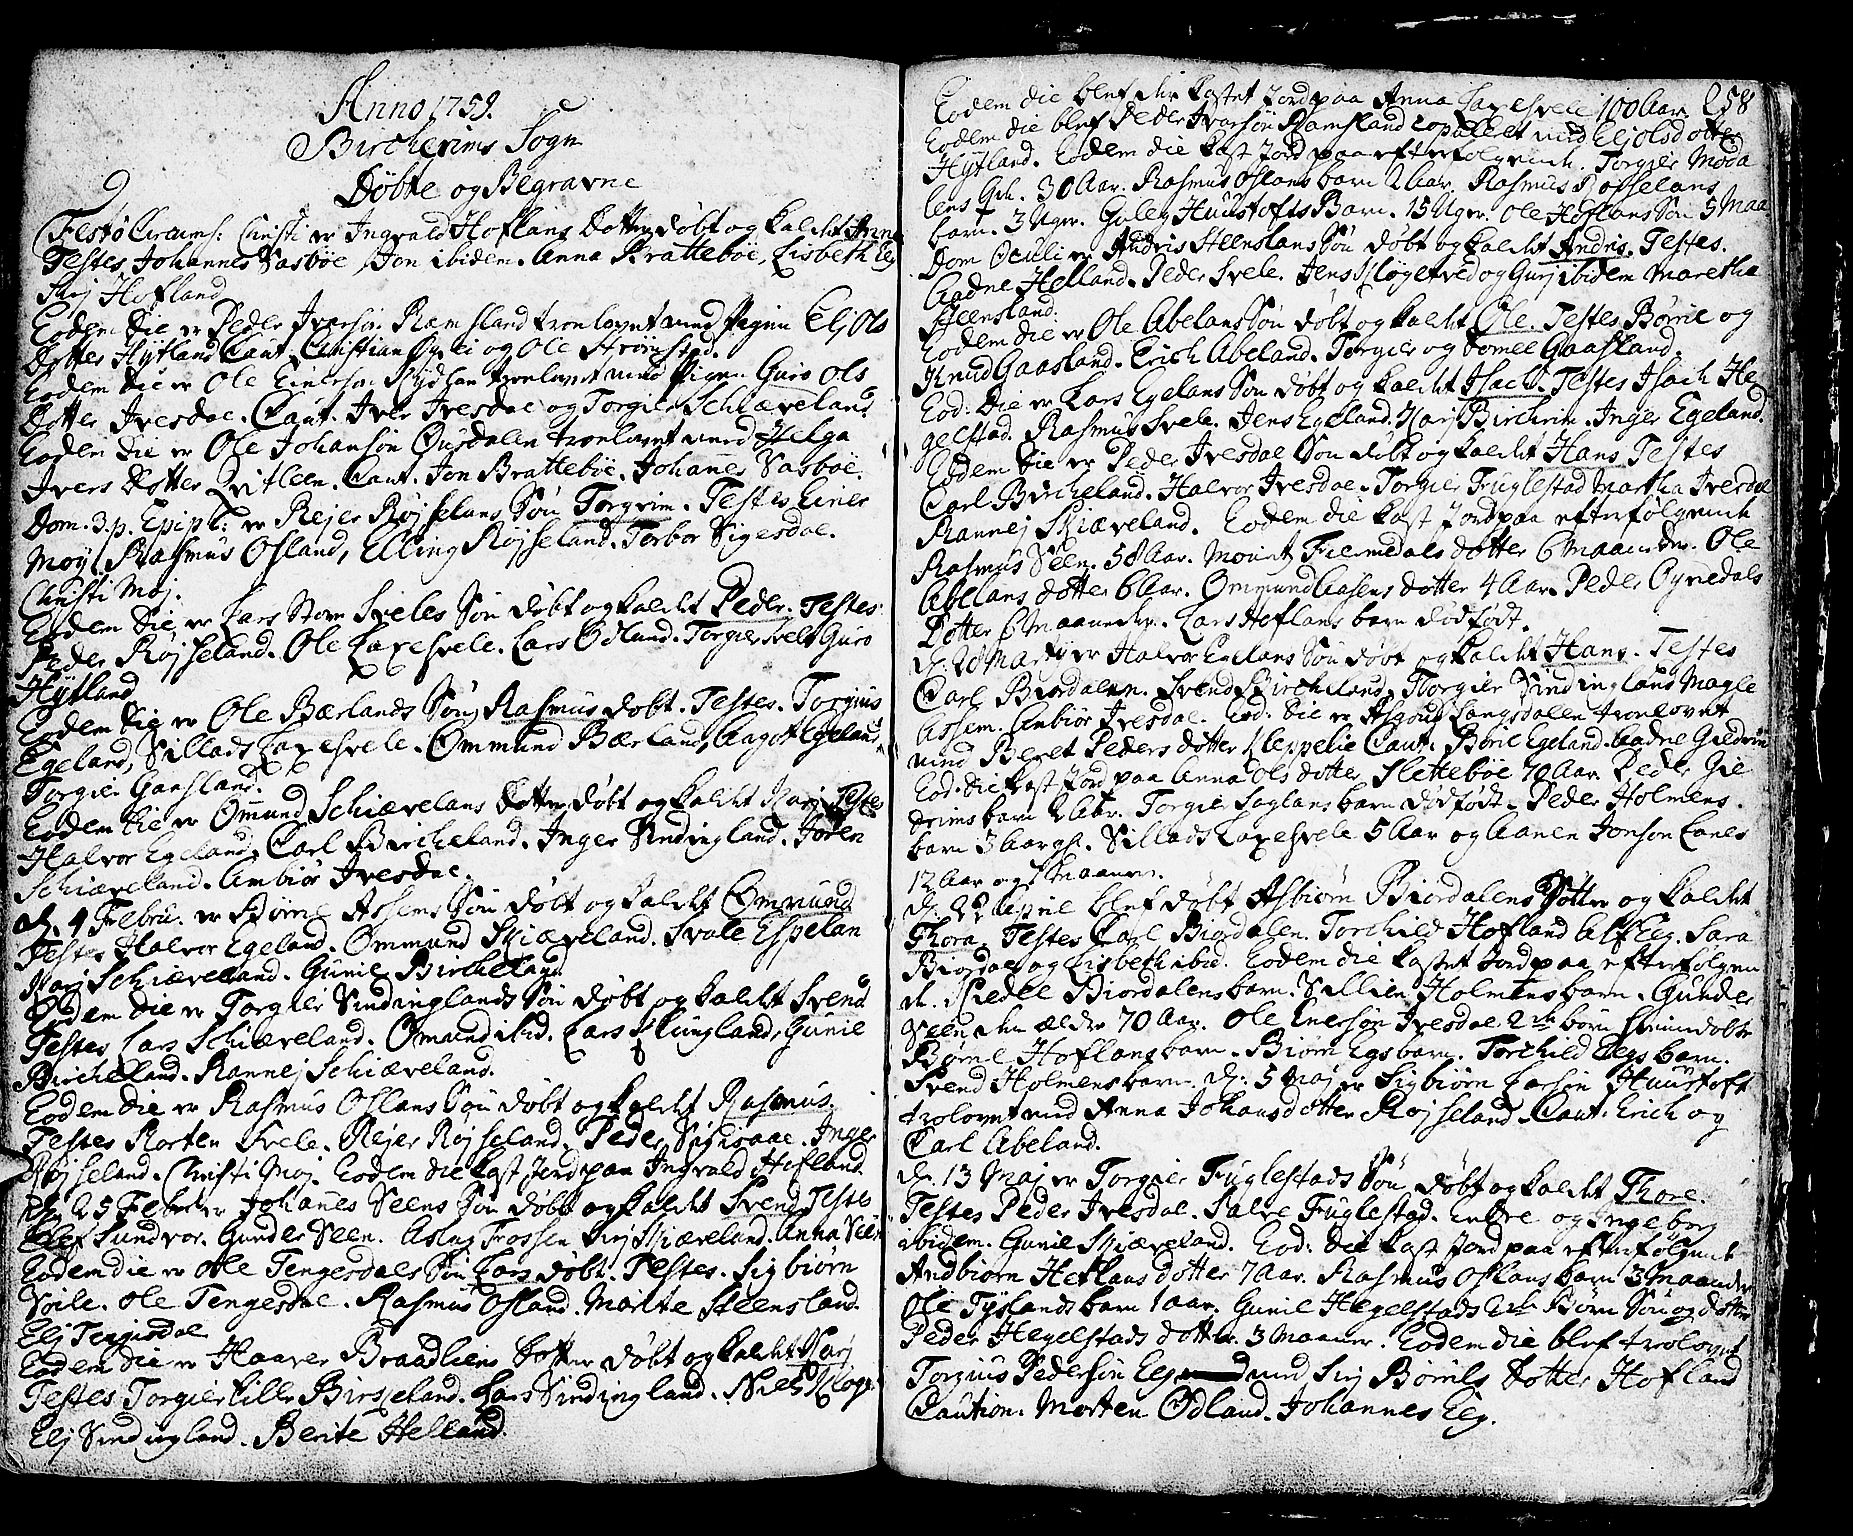 Anno 1759.
Bircherims Sogn
Døbte og Begravne
Festo Circums: Christi er Ingvald Hoflans Dotter døbt og kaldet Anna
Testes Johannes Sasbøe, Jon ibidem. Anna Brattebøe, Lisbeth Eeg
Sirj Hofland
Eodem die er Peder Iversøn Ramsland troelovet med Pigen Elj Ols
Dotter Hÿtland Caut. Christian og Ole
Eodem die er Ole Einersøn troelovet med Pigen Guro Ols
Dotter Ivesdae. Caut. Iver Ivesdae og Torgier Schiæveland
Eodem die er Ole Johansøn Øusdalen troelovet med Helga
Ivers Dotter Qvitleen. Caut. Jon Brattebøe. Johanes Sasbøe.
Dom. 3. p. Epiph: er Rejer Røjselans Søn Torgrim. Testes Einer
Moÿ, Rasmus Osland, Elling Røjseland. Torbor Sigesdae.
Christi Moj.
Eodem die er Lars Store Sveles Søn døbt og kaldet Peder. Testes
Peder Røjseland. Ole Laxesvele. Lars Ødland. Torgier Svele Guro
Hÿtland
Eodem die er Ole Bærlands Søn Rasmus døbt. Testes. Torgius
Egeland, Sillads Laxesvele. Ommund Bærland, Aagot Egeland
Torgier Gaasland.
Eodem die er Omund Schiævelans Dotter døbt og kaldet Karj Testes
Halvor Egeland, Carl Bircheland. Inger Sindingland. Joren
Schiæveland. Anbiør Ivesdae.
d. 4 Febru. er Børne Assens Søn døbt og kaldet Ommund
Testes Halvor Egeland. Ommund Skiæveland. Svale Espelan
Karj Schiæveland. Gunil Bircheland
Eodem die er Torgier Sindinglands Søn døbt og kaldet Svend
Testes Lars Schiæveland. Omund ibid. Lars Klungland, Gunil
Bircheland. Rannej Schiæveland.
Eodem die er Rasmus Oslans Søn døbt og kaldet Rasmus.
Testes Morten Svele. Rejer Røjseland. Peder Inger
Røjseland. Christi Moj. Eodem die kast Jord paa Ingvald Hofland
d. 25 Febru er Johanes Seens Søn døbt og kaldet Svend Testes
Sundvor. Gunder Seen. Aslag Frossen Sirj Skiæveland. Anna Seen
Eodem die er Ole Tengesdals Søn Lars døbt. Testes. Sigbiørn
Ole Tengesdae. Rasmus Osland. Marite Steensland.
Elj Tengesdal
Eodem die er Haaver Braadliens Dotter døbt og kaldet Karj
Testes Torgier Lille Birkeland. Lars Sindingland. Niels
Elj Sindingland. Berite Helland.
258
Eodem die blef der kastet Jord paa Anna Laxesvele 100 Aar.
Eodem die blef Peder Iversøn Ramsland copuleret med Elj Olsdotter
Hÿtland. Eodem die kast Jord paa efterfølgende. Torgier Moda
lens 30 Aar. Rasmus Oslans barn 2 Aar. Rasmus Røjselans
barn. 3 Uger. Guleg Huustofts Barn. 15 Uger. Ole Hoflans Søn 5 Maa
Dom Oculi er Andris Steenslans Søn døbt og kaldet Andris. Testes.
Aadne Helland. Peder Svele. Jens og Gurj ibidem Maretha
Steensland.
Eodem die er Ole Abelans Søn døbt og kaldet Ole. Testes Børrie og
Knud Gaasland. Erich Abeland. Torgier og Gaasland.
Eod: die er Lars Egelans Søn døbt og kaldet Isach. Testes Isach He
gelstad. Rasmus Svele. Jens Egeland. Karj Birchrim. Inger Egeland.
Eodem die er Peder Ivesdae Søn døbt og kaldet Hans Testes
Carl Bircheland. Halvor Ivesdae. Torgier Fuglestad Martha Ivesdae
Rannej Skiæveland. Eodem die kast Jord paa efterfølgende
Rasmus Seen. 58 Aar. dotter 6 maaneder. Ole
Abelans dotter 6 Aar. Ommund Aasens dotter 4 Aar. Peder Øgnedals
Dotter 6 Maaneder. Lars Hoflans barn dødfødt.
d. 28 Martj er Halvor Egelans Søn døbt og kaldet Hans. Testes
Carl Biordalen. Svend Bircheland. Torgier Sindingland Magle
Assem. Anbiør Ivesdae. Eod: die er Langsdalen troelovet
med Beret Peders dotter Kleppelie Caut. Børie Egeland. Aadne
Eod: die kast Jord paa Anna Ols dotter Slettebøe 70 Aar. Peder Gie
drims barn 2 Aar. Torgier barn dødfødt. Peder Holmens
barn 3 Aar gl. Sillads Laxesvele 5 Aar og Aanen Jonsøn Lanes
12 Aar og 7 Maaner.
d. 22 April blef døbt Asbiørn Biordalens Dotter og kaldet
Thora. Testes Carl Biordalen. Torchild Hofland Alf Eeg. Sara
Biordal og Lisbeth ibid. Eodem die kastet Jord paa efterfølgen
d. Biordalens barn. Holmens barn. Gunder
Seen den ældre 70 Aar. Ole Enersøn Ivesdae 2de børn hiemdøbte
Børne Hoflans barn. Biørn Egs barn. Torchild Eegs barn.
Svend Holmens barn. d. 5 Maj er Sigbiørn Larsøn Huustoft
trolovet med Anna Johans dotter Røjseland. Caut. Erich og
Carl Abeland.
d. 13 Maj er Torgier Fuglestads Søn døbt og kaldet Thore.
Testes Peder Ivesdae. Salve Fuglestad. Endre og Ingeborg
ibidem. Gunil Skiæveland. Eod: die kast Jord paa efterfølgende
Andbiørn Hoflans dotter 7 Aar. Rasmus Oslans barn 3 Maaneder
Ole Tÿslands barn 1 aar. Gunil Hegelstads 2de Børn Søn og dotter
Peder Hegelstads dotter 3 Maaner. Eodem die blef trolovet
Torgius Pedersøn Eeg med Sirj Børnils Dotter Hofland
Caution. Morten Ødland. Johannes Eeg.